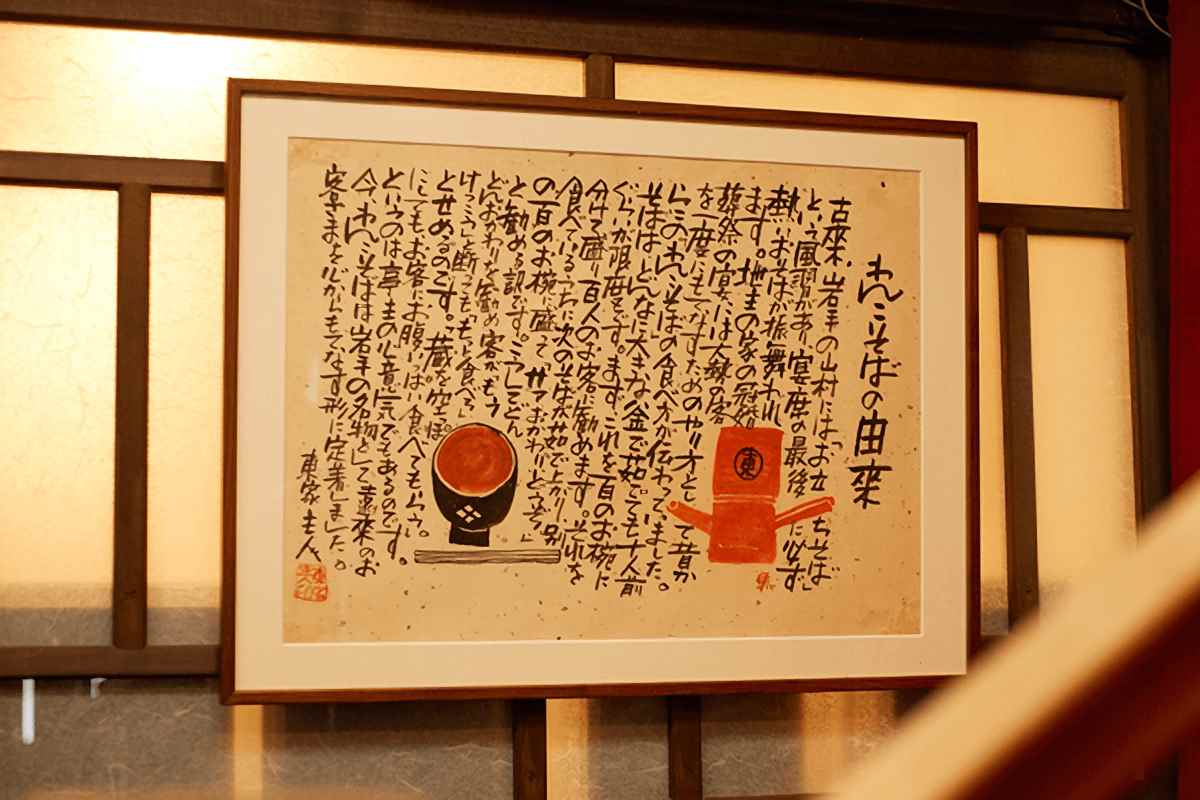 わんこそばの由来
古来、岩手の山村には「お立ちそば」
という風習があり、宴席の最後に必ず
熱いおそばが振舞われ
ます。地主の家の冠婚
葬祭の宴には大勢の客
を一度にもてなすためのやり方として昔か
らこの「わんこそば」の食べ方が伝わっていました。
そばはどんなに大きな釜で茹でても十人前
ぐらいが限度です。まず、これを百のお椀に
分けて盛り百人のお客に勧めます。それを
食べているうちに次のそばが茹で上がり、別
の百のお椀に盛って「サァおかわりどうぞ」
と勧める訳です。こうしてどん
どんおかわりを勧め客がもう
けっこうと断っても「もっと食べて」
とせめるのです。「蔵を空っぽ
にしてもお客にお腹いっぱい食べてもらう。」
というのは亭主の心意気でもあるのです。
今、わんこそばは岩手の名物として、遠来のお
客さまを心からもてなす形に定着しました。
東家主人
東